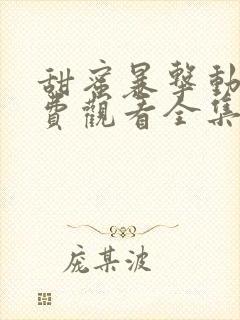 甜蜜暴擊動
費觀看全集
庞某波